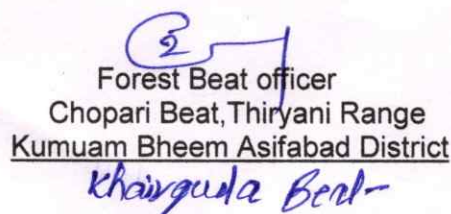 Forest Beat officer
Chopari Beat,Thiryani Range
Kumuam Bheem Asifabad District
Khairguda Beat